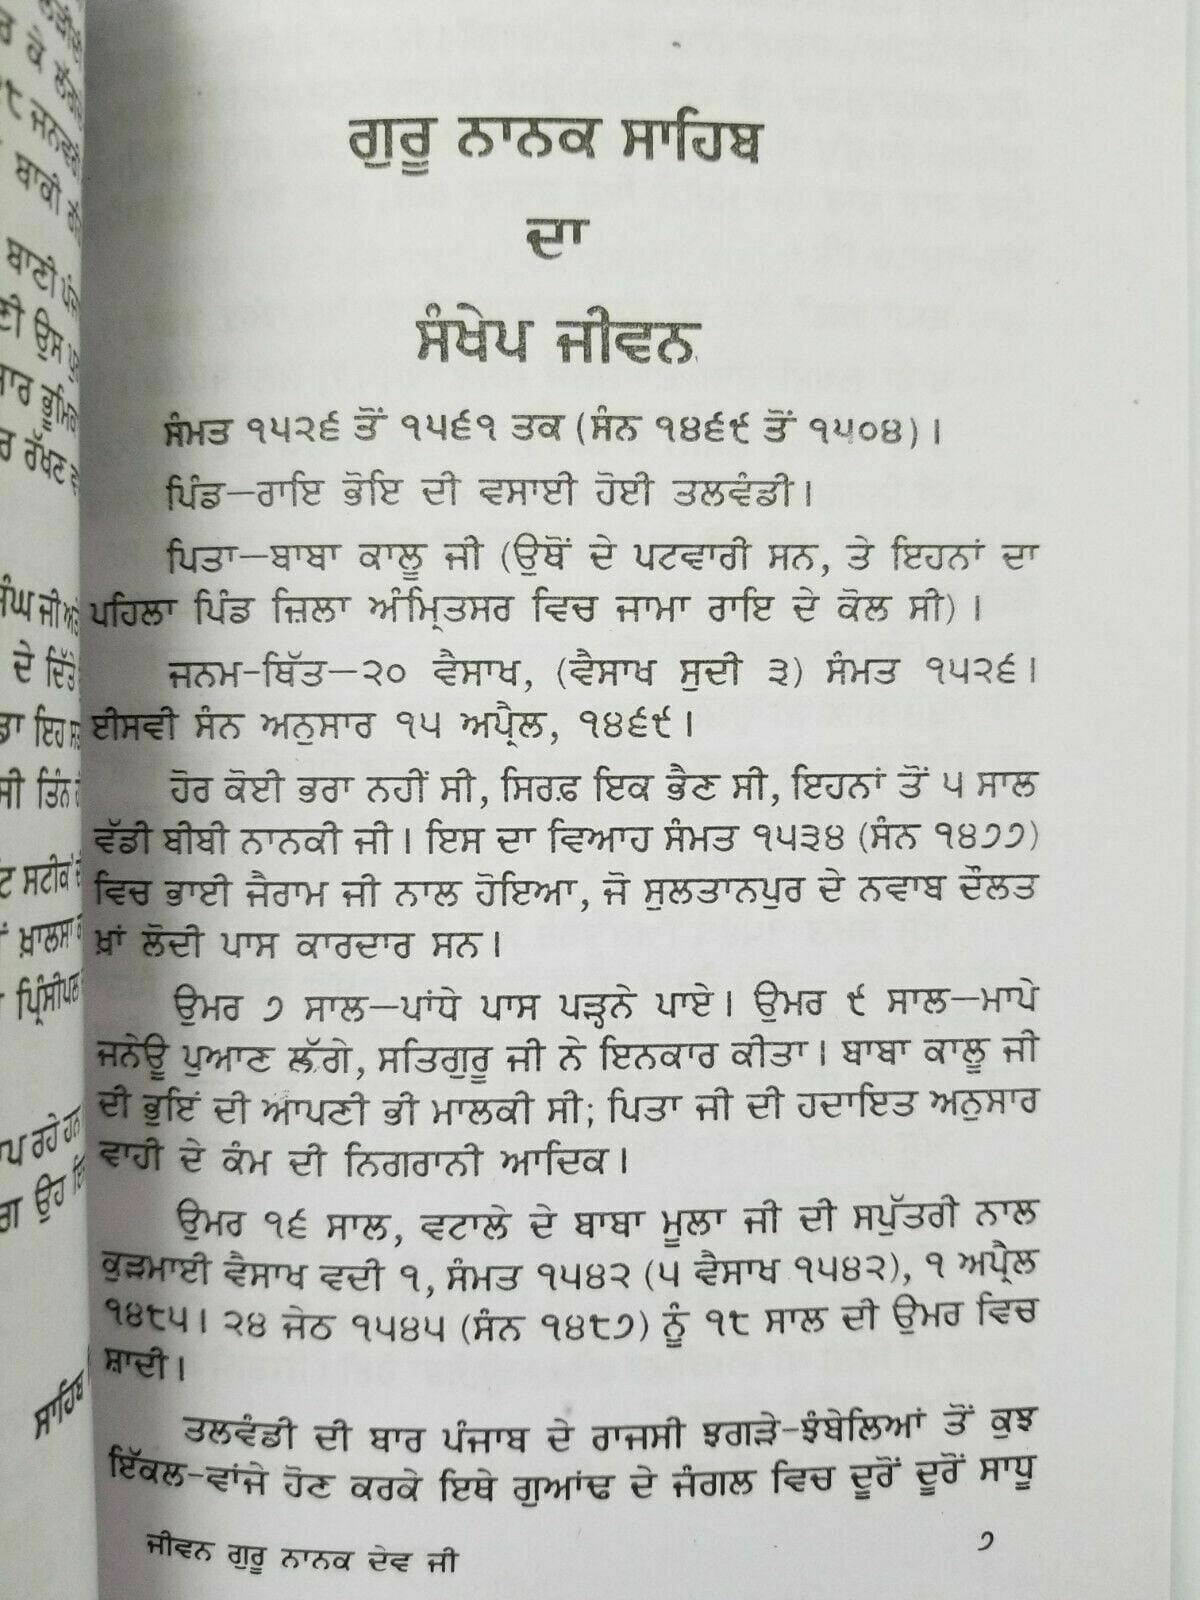 ਗੁਰੂ ਨਾਨਕ ਸਾਹਿਬ
ਦਾ
ਸੰਖੇਪ ਜੀਵਨ
ਸੰਮਤ ੧੫੨੬ ਤੋਂ ੧੫੬੧ ਤਕ (ਸੰਨ ੧੪੬੯ ਤੋਂ ੧੫੦੪) ।
ਪਿੰਡ—ਰਾਇ ਭੋਇ ਦੀ ਵਸਾਈ ਹੋਈ ਤਲਵੰਡੀ ।
ਪਿਤਾ—ਬਾਬਾ ਕਾਲੂ ਜੀ (ਉਥੋਂ ਦੇ ਪਟਵਾਰੀ ਸਨ, ਤੇ ਇਹਨਾਂ ਦਾ
ਪਹਿਲਾ ਪਿੰਡ ਜ਼ਿਲਾ ਅੰਮ੍ਰਿਤਸਰ ਵਿਚ ਜਾਮਾ ਰਾਇ ਦੇ ਕੋਲ ਸੀ) ।
ਜਨਮ-ਥਿੱਤ—੨੦ ਵੈਸਾਖ, (ਵੈਸਾਖ ਸੁਦੀ ੩) ਸੰਮਤ ੧੫੨੬ ।
ਈਸਵੀ ਸੰਨ ਅਨੁਸਾਰ ੧੫ ਅਪ੍ਰੈਲ, ੧੪੬੯ ।
ਹੋਰ ਕੋਈ ਭਰਾ ਨਹੀਂ ਸੀ, ਸਿਰਫ਼ ਇਕ ਭੈਣ ਸੀ, ਇਹਨਾਂ ਤੋਂ ੫ ਸਾਲ
ਵੱਡੀ ਬੀਬੀ ਨਾਨਕੀ ਜੀ । ਇਸ ਦਾ ਵਿਆਹ ਸੰਮਤ ੧੫੩੪ (ਸੰਨ ੧੪੭੭)
ਵਿਚ ਭਾਈ ਜੈਰਾਮ ਜੀ ਨਾਲ ਹੋਇਆ, ਜੋ ਸੁਲਤਾਨਪੁਰ ਦੇ ਨਵਾਬ ਦੌਲਤ
ਖ਼ਾਂ ਲੋਦੀ ਪਾਸ ਕਾਰਦਾਰ ਸਨ ।
ਉਮਰ ੭ ਸਾਲ—ਪਾਂਧੇ ਪਾਸ ਪੜ੍ਹਨੇ ਪਾਏ । ਉਮਰ ੯ ਸਾਲ—ਮਾਪੇ
ਜਨੇਊ ਪੁਆਣ ਲੱਗੇ, ਸਤਿਗੁਰੂ ਜੀ ਨੇ ਇਨਕਾਰ ਕੀਤਾ । ਬਾਬਾ ਕਾਲੂ ਜੀ
ਦੀ ਭੁਇਂ ਦੀ ਆਪਣੀ ਭੀ ਮਾਲਕੀ ਸੀ; ਪਿਤਾ ਜੀ ਦੀ ਹਦਾਇਤ ਅਨੁਸਾਰ
ਵਾਹੀ ਦੇ ਕੰਮ ਦੀ ਨਿਗਰਾਨੀ ਆਦਿਕ ।
ਉਮਰ ੧੬ ਸਾਲ, ਵਟਾਲੇ ਦੇ ਬਾਬਾ ਮੂਲਾ ਜੀ ਦੀ ਸਪੁੱਤਰੀ ਨਾਲ
ਕੁੜਮਾਈ ਵੈਸਾਖ ਵਦੀ ੧, ਸੰਮਤ ੧੫੪੨ (੫ ਵੈਸਾਖ ੧੫੪੨), ੧ ਅਪ੍ਰੈਲ
੧੪੮੫ । ੨੪ ਜੇਠ ੧੫੪੫ (ਸੰਨ ੧੪੮੭) ਨੂੰ ੧੮ ਸਾਲ ਦੀ ਉਮਰ ਵਿਚ
ਸ਼ਾਦੀ ।
ਤਲਵੰਡੀ ਦੀ ਬਾਰ ਪੰਜਾਬ ਦੇ ਰਾਜਸੀ ਝਗੜੇ-ਝੰਬੇਲਿਆਂ ਤੋਂ ਕੁਝ
ਇੱਕਲ-ਵਾਂਜੇ ਹੋਣ ਕਰਕੇ ਇਥੇ ਗੁਆਂਢ ਦੇ ਜੰਗਲ ਵਿਚ ਦੂਰੋਂ ਦੂਰੋਂ ਸਾਧੂ
ਜੀਵਨ ਗੁਰੂ ਨਾਨਕ ਦੇਵ ਜੀ
੭